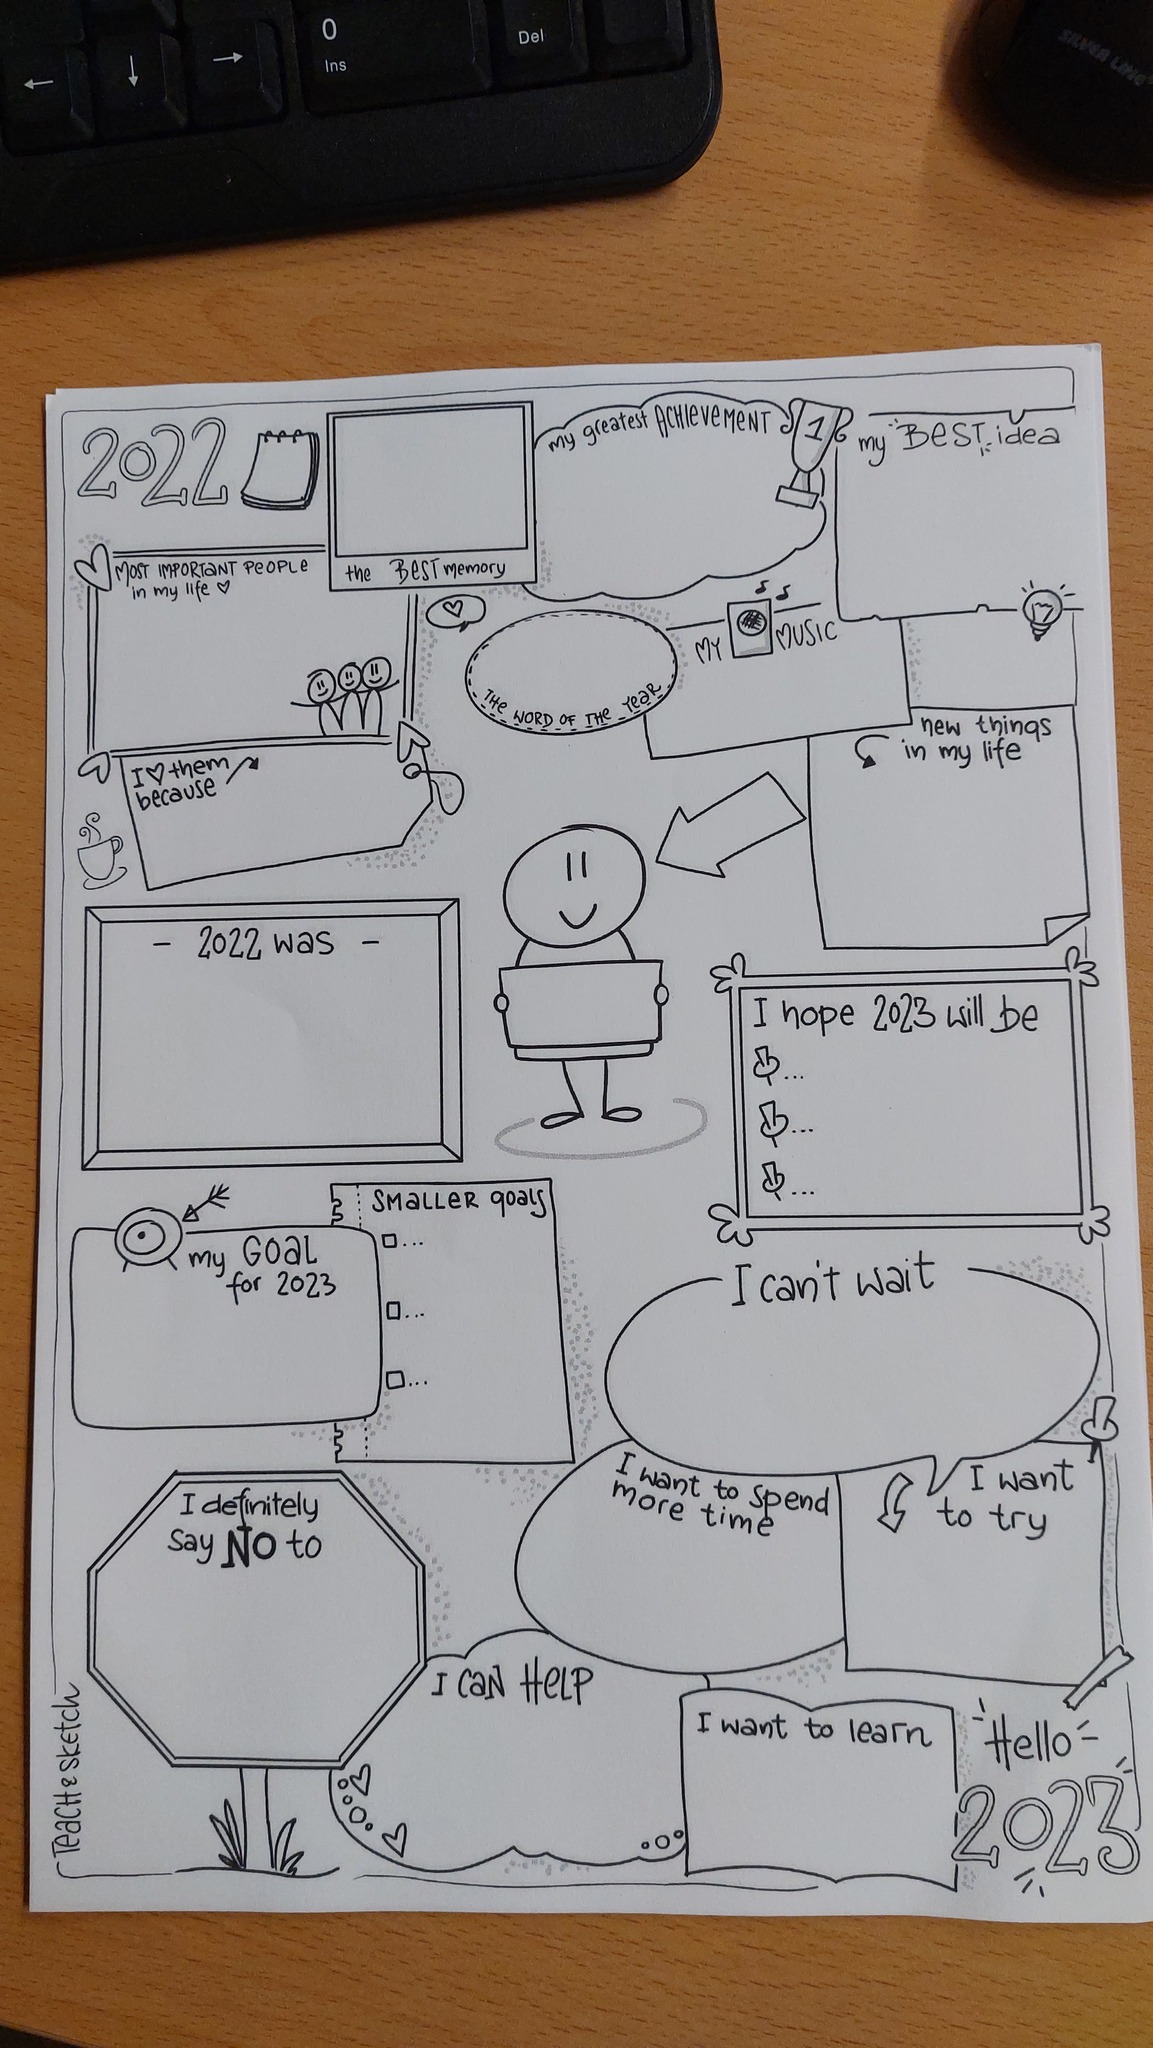 0
Ins
Del
SILVER LINE
2022
the BEST memory
my greatest ACHIEVEMENT
1
my BEST idea
MOST IMPORTANT PEOPLE
in my life
THE WORD OF THE YEAR
MY MUSIC
new things
in my life
I them
because
- 2022 was -
I hope 2023 will be
...
...
...
my GOAL
for 2023
SMALLER goals
...
...
...
I can't wait
I want to spend
more time
I want
to try
I definitely
say NO to
I CAN HELP
I want to learn
Hello
2023
TEACH & SKETCH